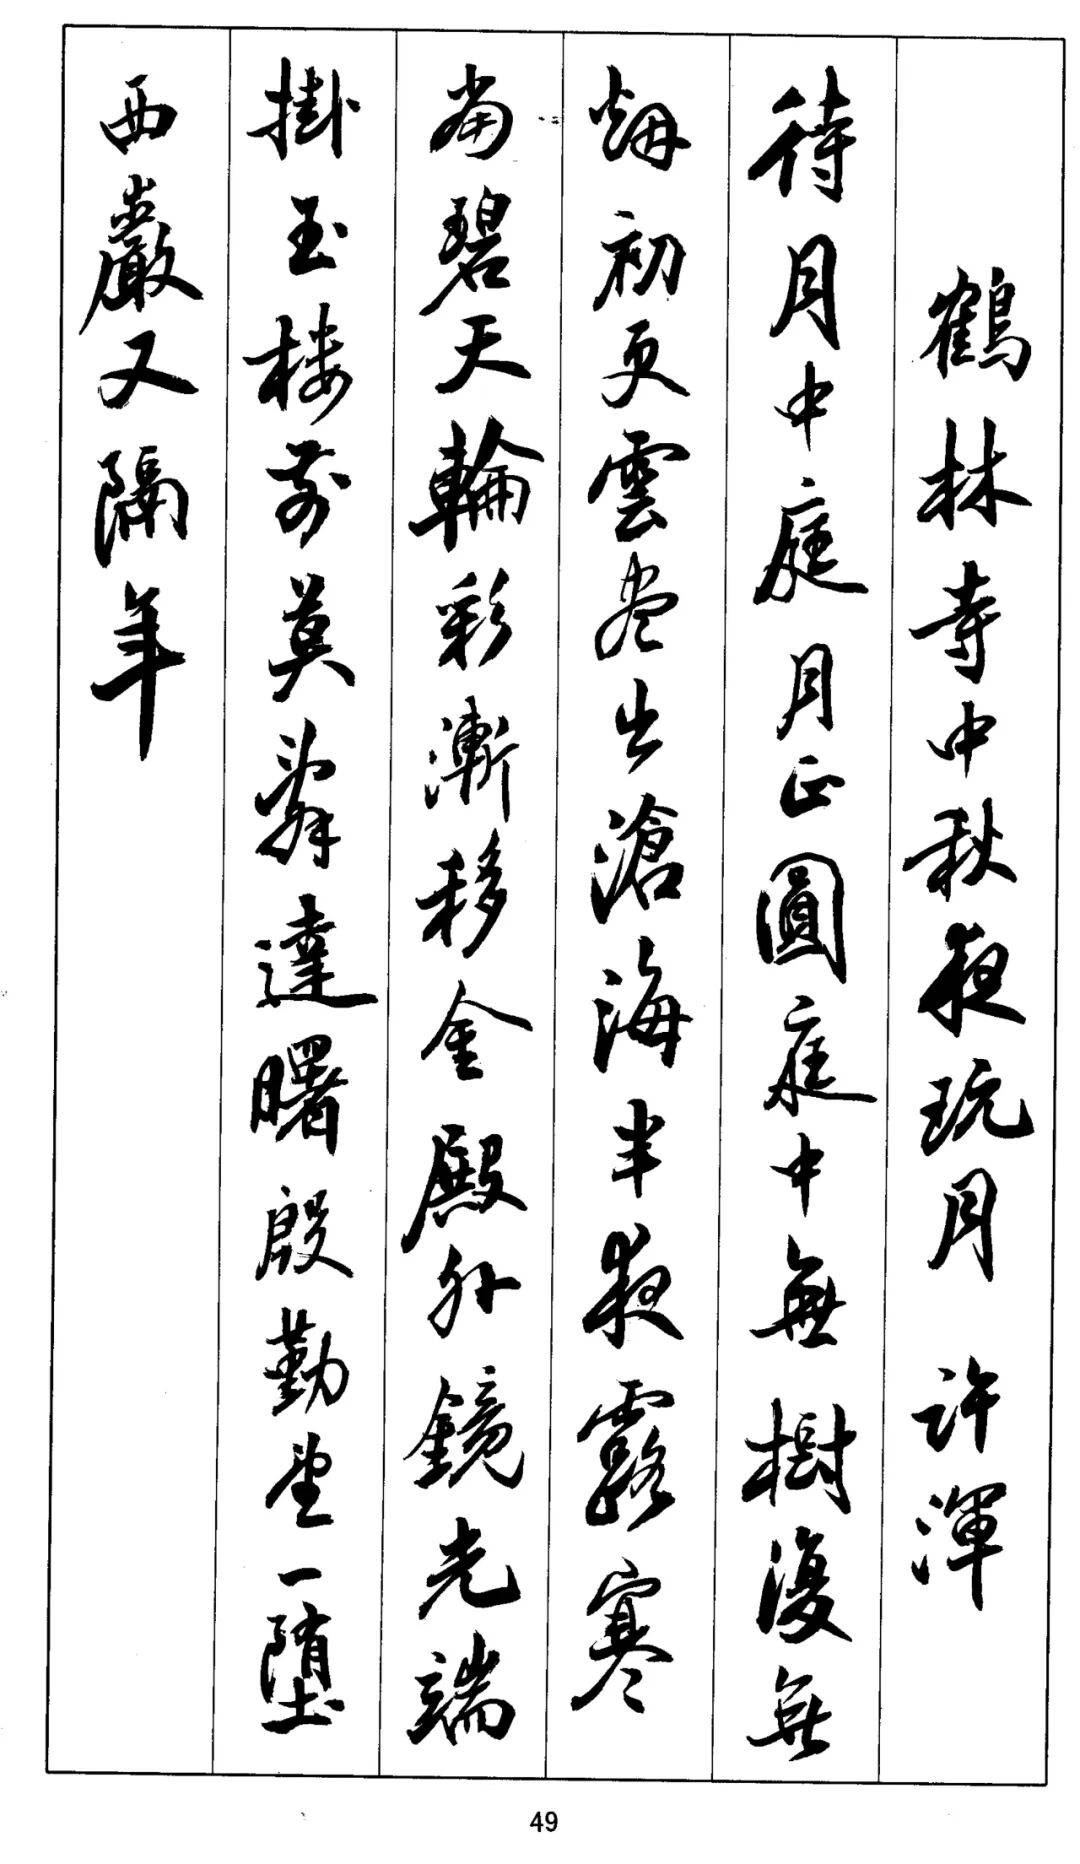 鶴林寺中秋夜玩月 許渾
待月中庭月正圓庭中無樹復無
烟初更雲盡出滄海半夜露寒
當碧天輪彩漸移金殿外鏡光端
掛玉楼前莫辭達曙殷勤望一堕
西巖又隔年
49